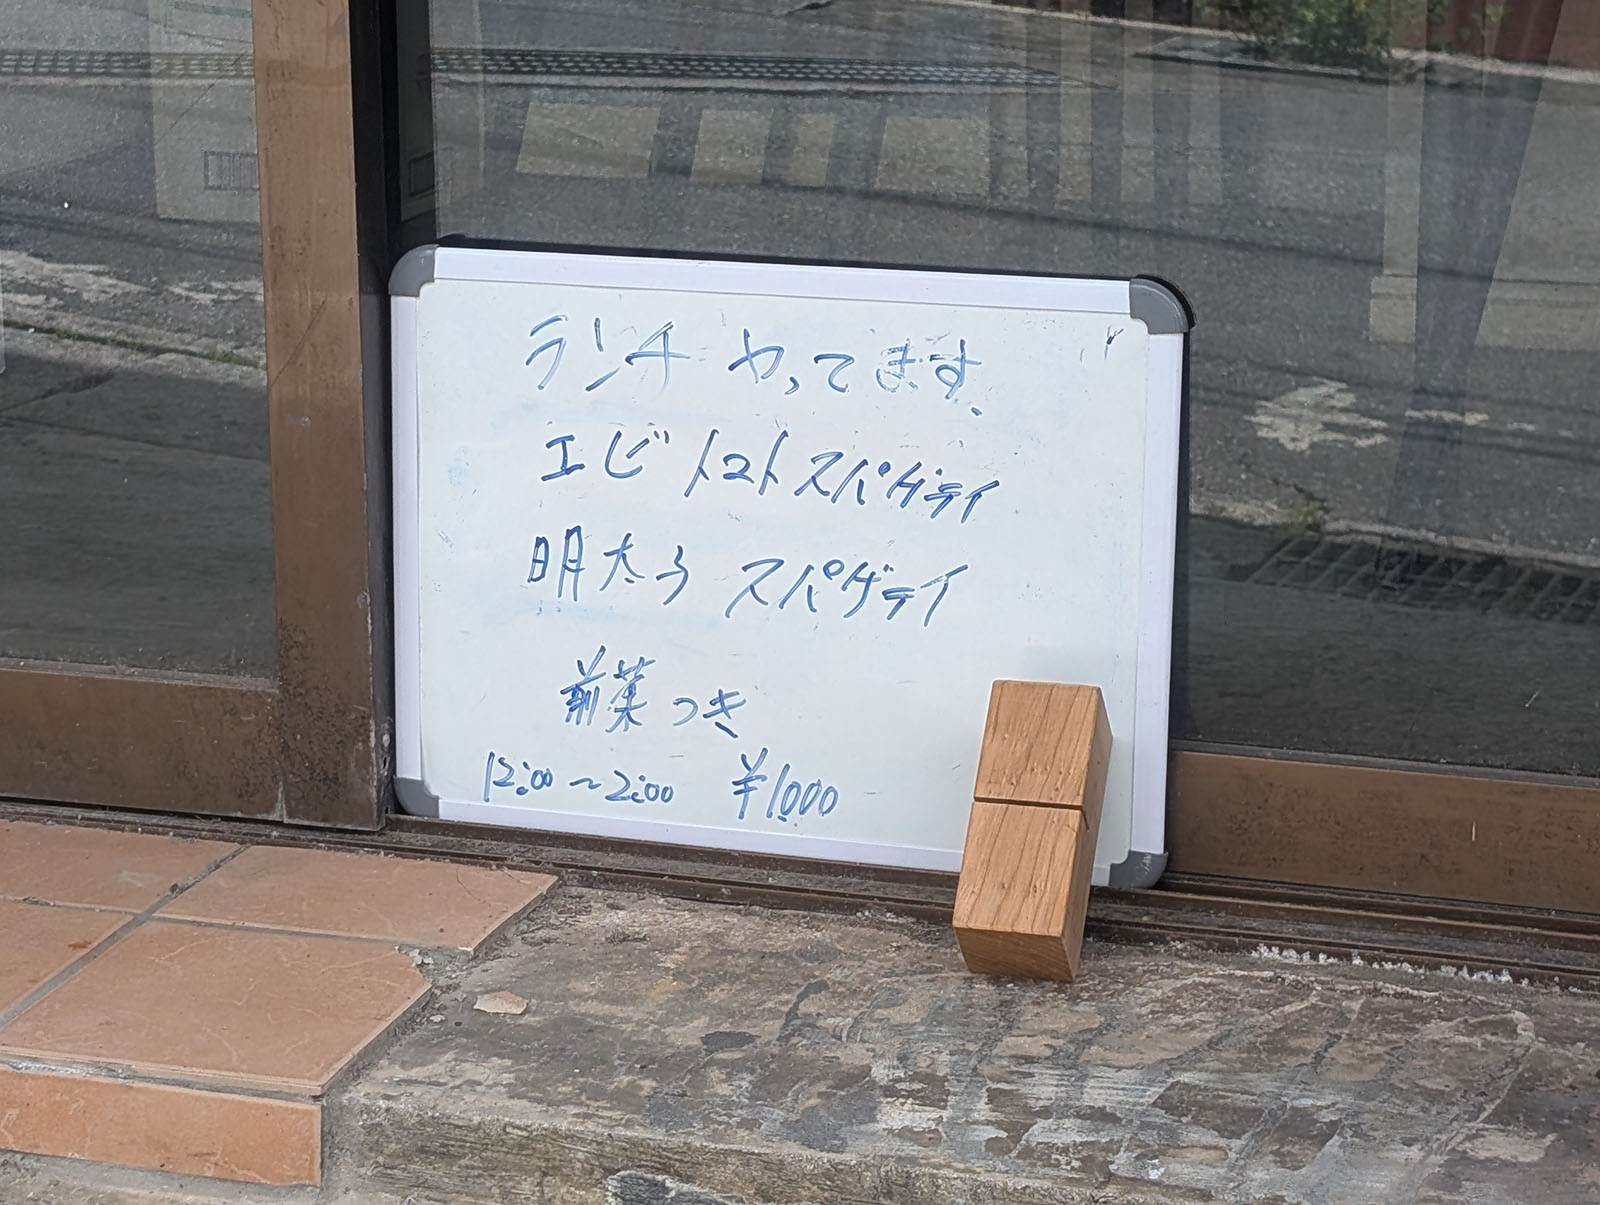 ランチ やってます.
エビ トマトスパゲティ
明太子 スパゲティ
前菜つき
12:00〜2:00 ¥1000